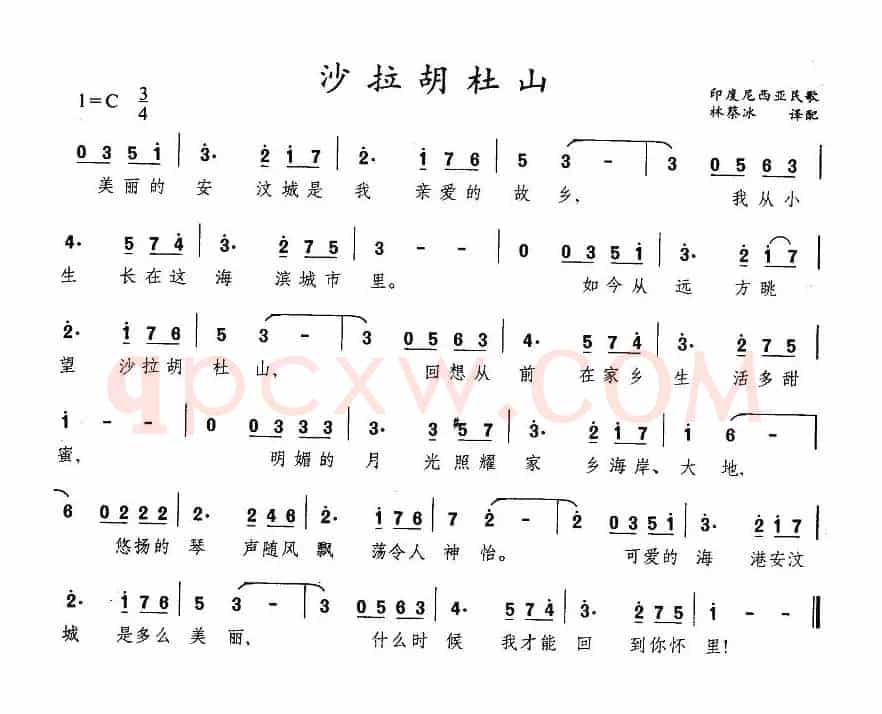 沙拉胡杜山
1=C 3/4
印度尼西亚民歌
林蔡冰 译配
0 3 5 i | 3· 2 i 7 | 2· i 7 6 | 5 3 - | 3 0 5 6 3 |
美丽的安 汶城是我 亲爱的故乡, 我从小
4· 5 7 4 | 3· 2 7 5 | 3 - - | 0 0 3 5 i | 3· 2 i 7 |
生 长在这海 滨城市里。 如今从远 方眺
2· i 7 6 | 5 3 - | 3 0 5 6 3 | 4· 5 7 4 | 3· 2 7 5 |
望 沙拉胡杜山, 回想从前 在家乡生 活多甜
i - - | 0 0 3 3 3 | 3· 3 #5 7 | 3· 2 i 7 | i 6 - |
蜜, 明媚的月 光照耀家 乡海岸、大地,
6 0 2 2 2 | 2· 2 4 6 | 2· i 7 6 | 7 2 - | 2 0 3 5 i | 3· 2 i 7 |
悠扬的琴 声随风飘 荡令人神怡。 可爱的海 港安汶
2· i 7 6 | 5 3 - | 3 0 5 6 3 | 4· 5 7 4 | 3· 2 7 5 | i - - ‖
城 是多么美丽, 什么时候 我才能回 到你怀里!
qpcxw.COM